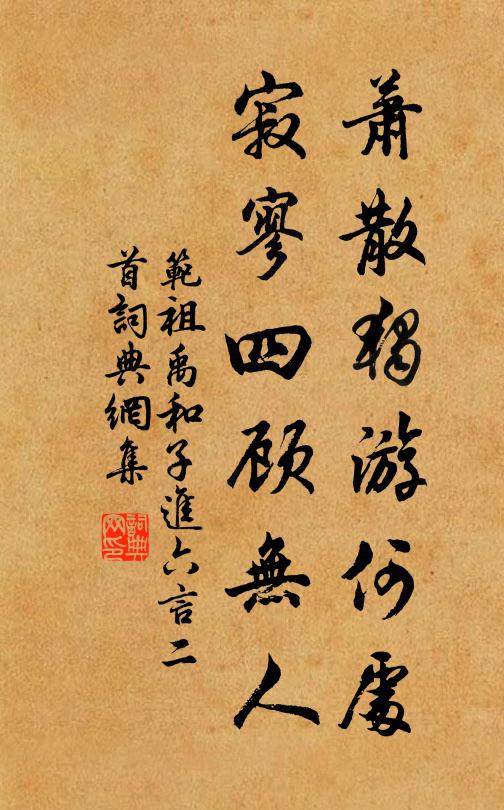 蕭散獨游何處
寂寥四顧無人
範祖禹和子進六言二
首詞典網集
詞典網印